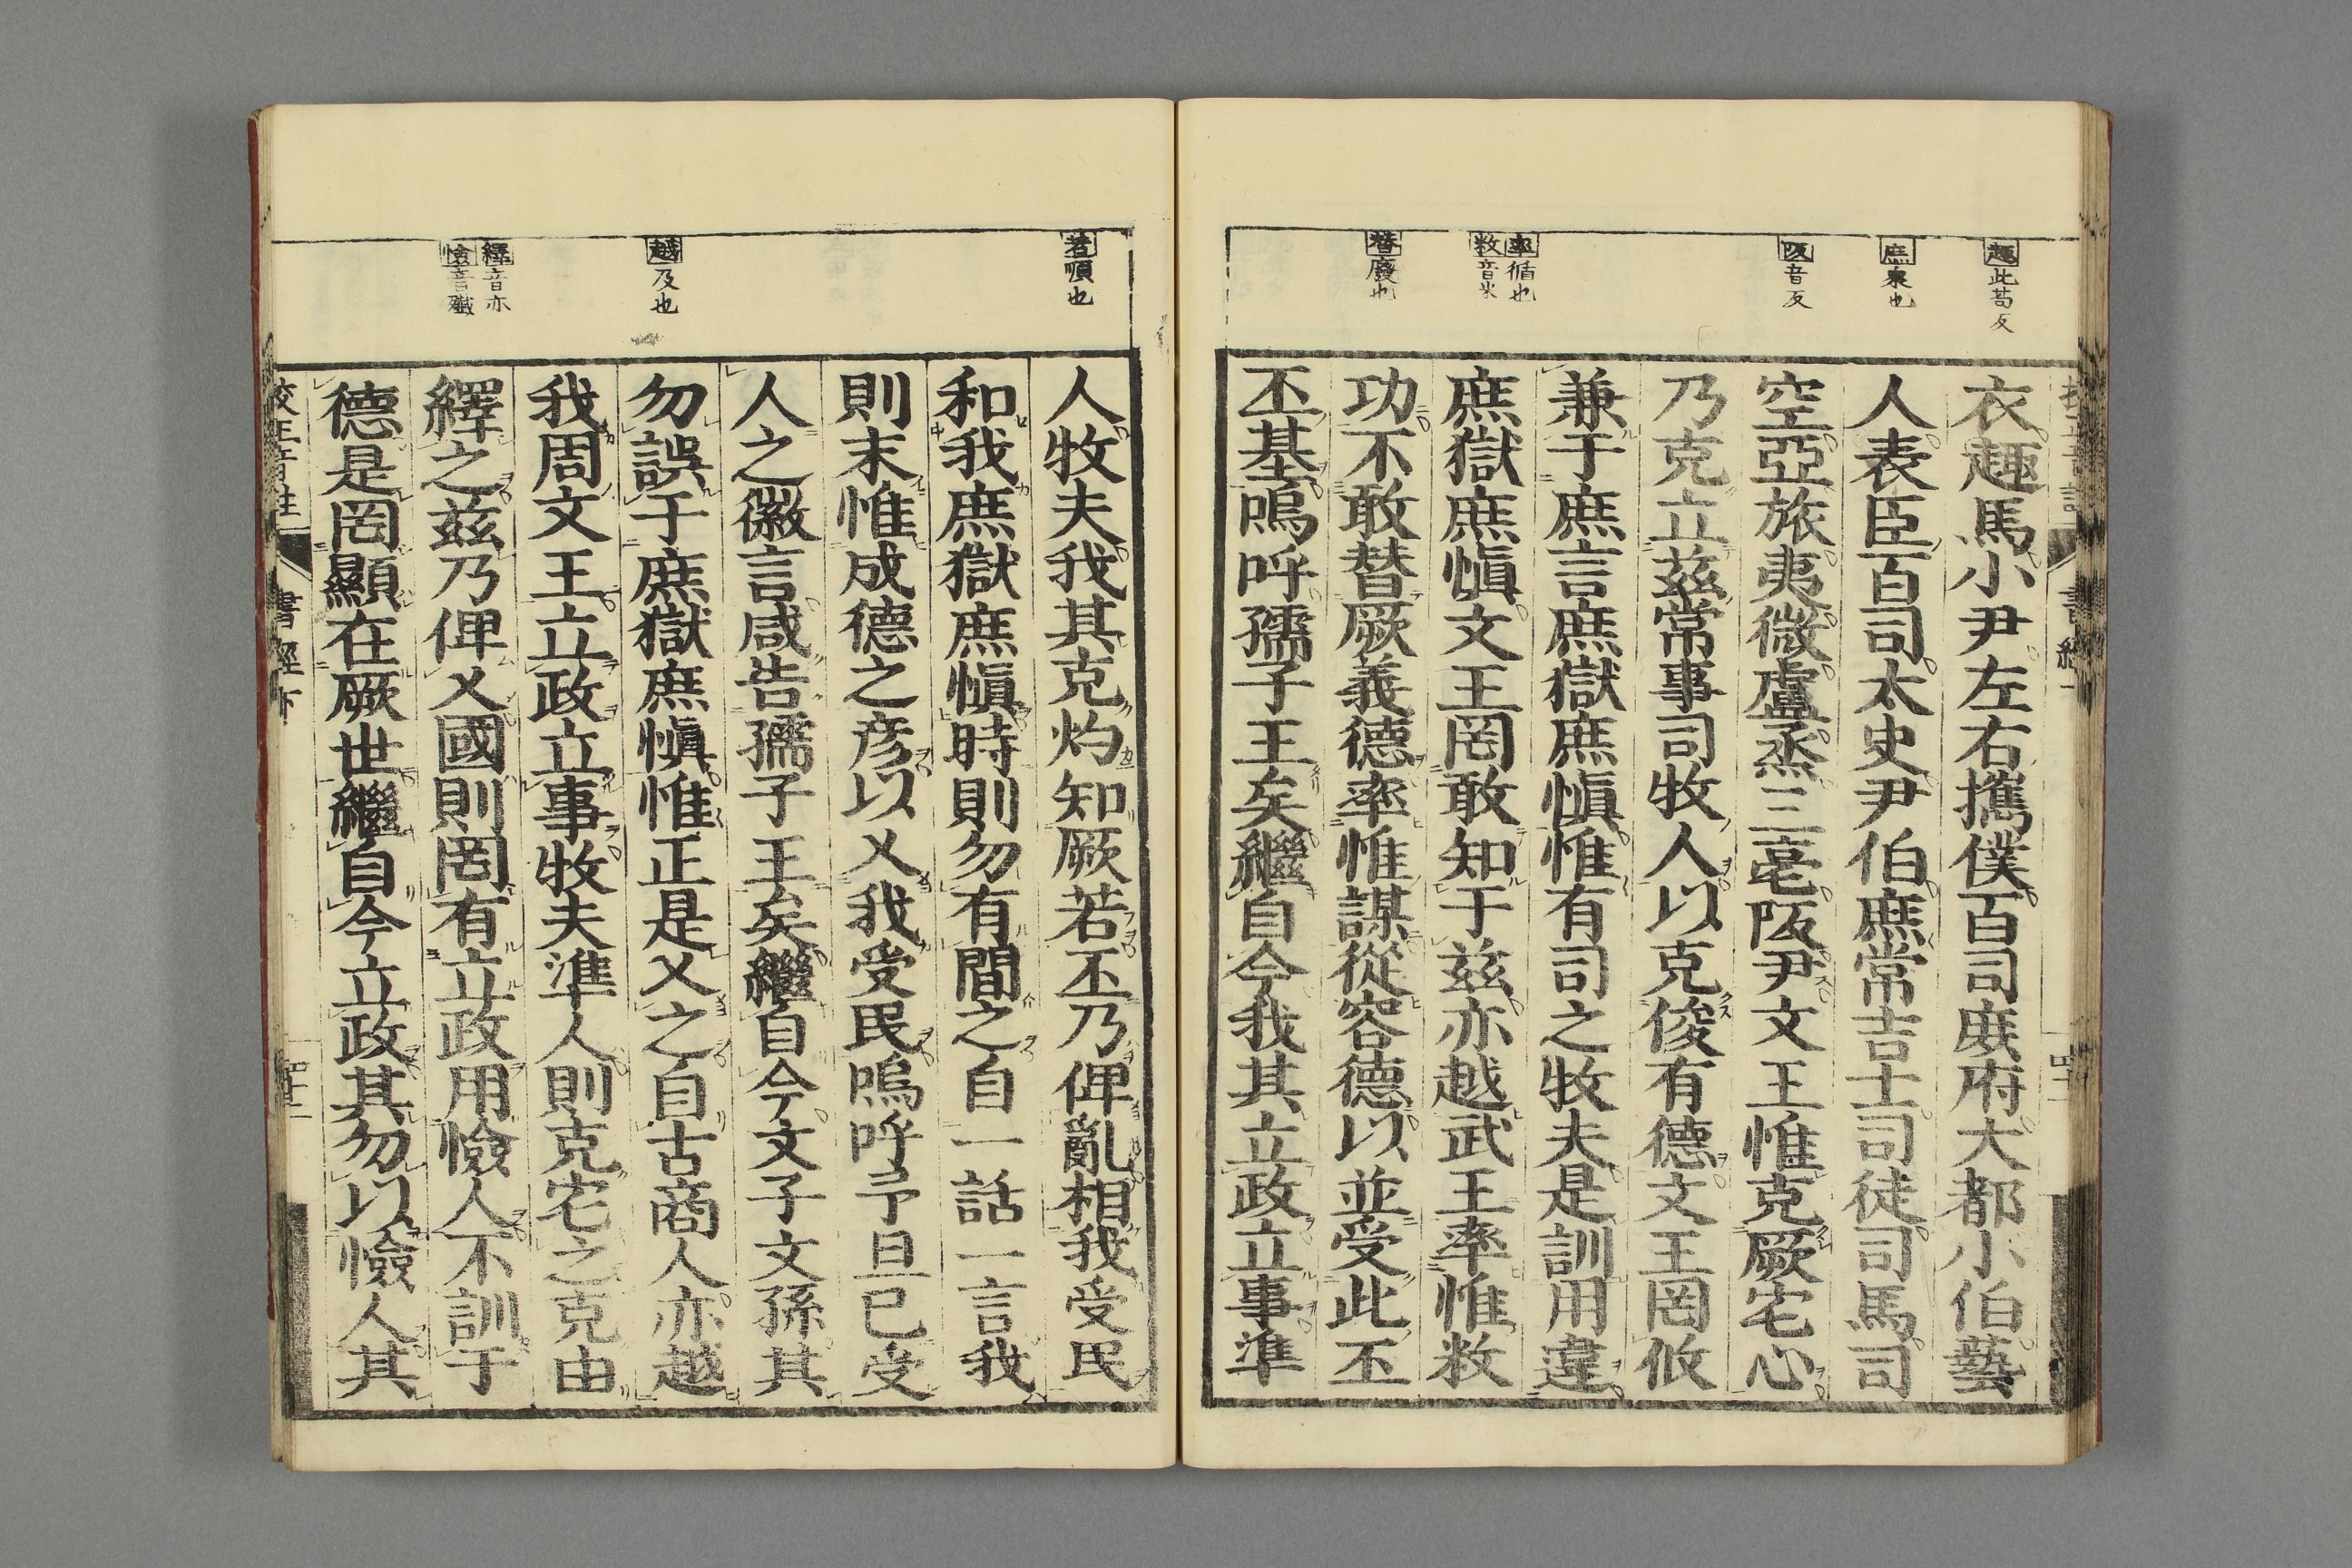 趣此苟反
庶衆也
阪音反
率循也
敉音米
替廢也
衣趣馬小尹左右攜僕百司庶府大都小伯藝
人表臣百司太史尹伯庶常吉士司徒司馬司
空亞旅夷微盧烝三亳阪尹文王惟克厥宅心
乃克立茲常事司牧人以克俊有德文王罔攸
兼于庶言庶獄庶愼惟有司之牧夫是訓用違
庶獄庶愼文王罔敢知于茲亦越武王率惟敉
功不敢替厥義德率惟謀從容德以並受此丕
丕基嗚呼孺子王矣繼自今我其立政立事準
若順也
越及也
繹音亦
憸音殲
人牧夫我其克灼知厥若丕乃俾亂相我受民
和我庶獄庶愼時則勿有間之自一話一言我
則末惟成德之彦以乂我受民嗚呼予旦已受
人之徽言咸告孺子王矣繼自今文子文孫其
勿誤于庶獄庶愼惟正是乂之自古商人亦越
我周文王立政立事牧夫準人則克宅之克由
繹之茲乃俾乂國則罔有立政用憸人不訓于
德是罔顯在厥世繼自今立政其勿以憸人其
校正音註 書經下